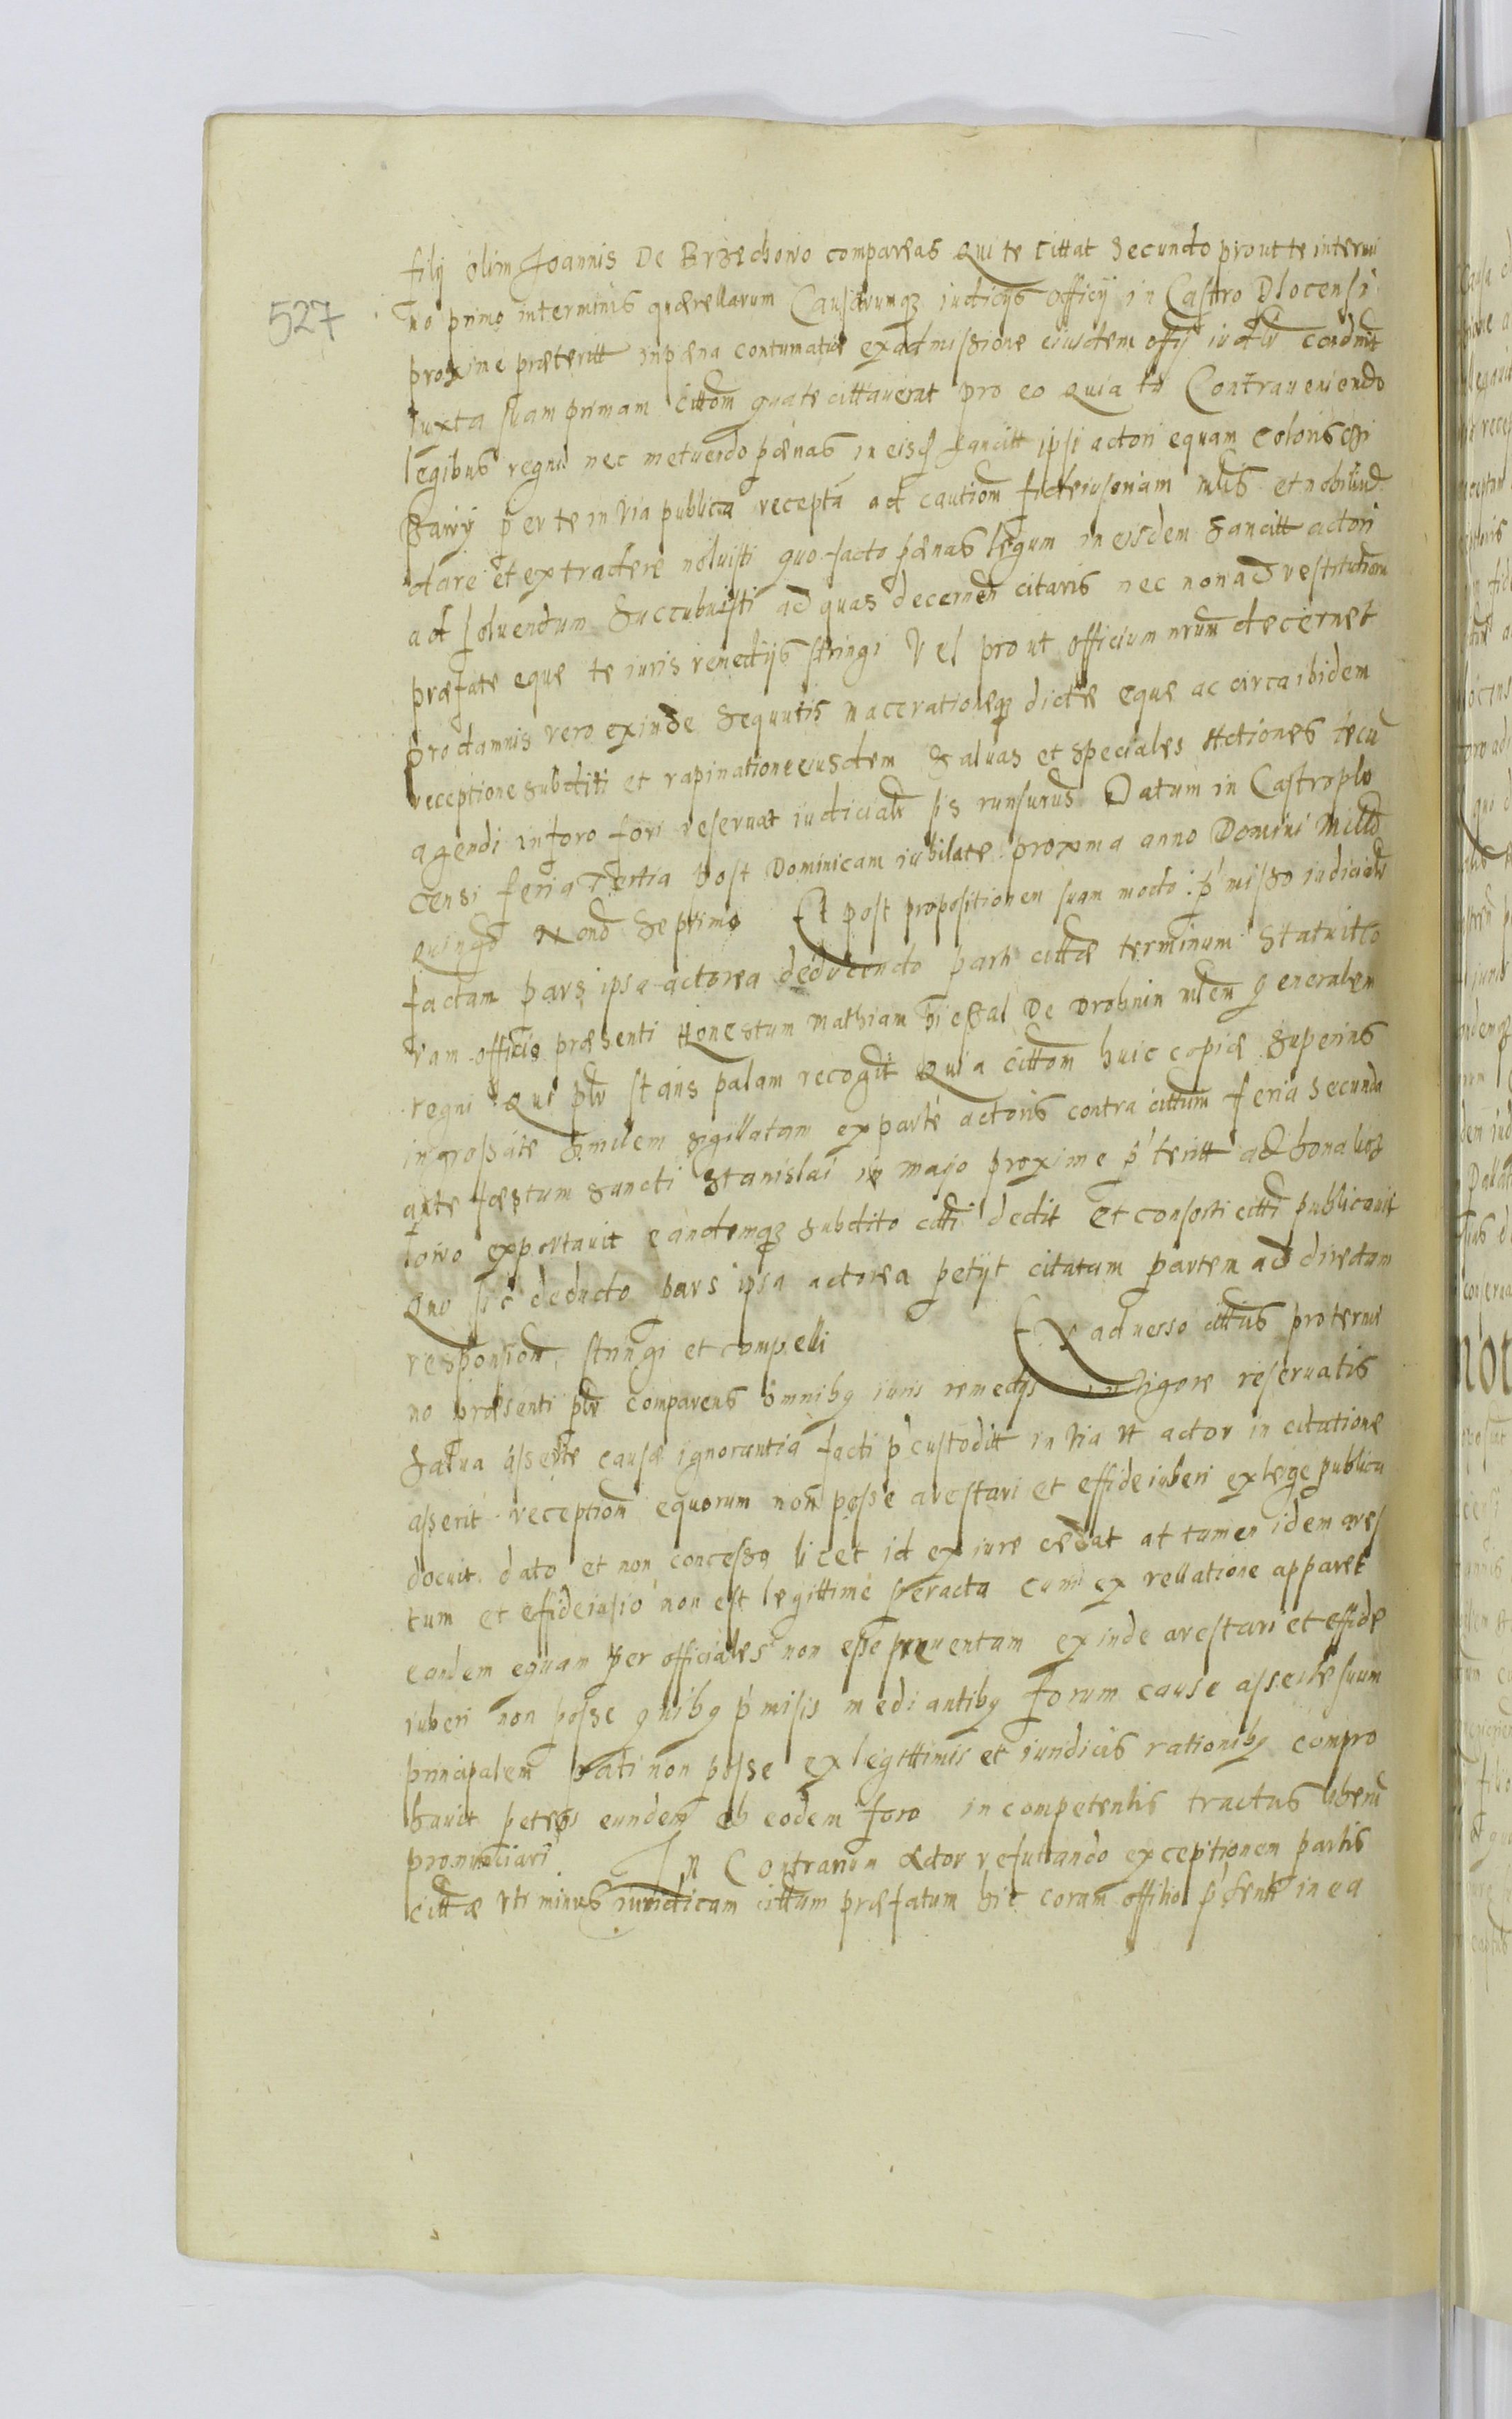 filij olim Joannis De Brzechowo compareas Qui te Cittat Secundo prout te intermi
527
no primo interminis quærellarum Causarumq iudicijs officij in Castro Plocensi
proxime præteritt inpæna contumatiæ exadmissione eiusdem offij iudlr condnit
Iuxta suam primam Cittom qua te cittauerat pro eo Quia tu Contraueniendo
legibus regni nec metuendo pænas in eisd sancitt ipsi actori equam Coloris
per te in via publica recepta ad cautiom fideiusoriam et nobilium
dare et extradere noluisti quo facto pænas legum in eisdem Sancitt actori
ad soluendum Succubuisti ad quas decernen citaris nec non ad restitutiom
præfate eque te iuris remedijs stringi Vel prout officium nrum decernet
Pro damnis vero exinde Sequutis macerationeq dictæ equæ ac circa ibidem
receptione subditi et rapinatione eiusdem Saluas et Speciales Actiones tecu
agendi inforo fori reseruat iudicialr is runsurus Datum in Castro plo
censi feria Tertia Post Dominicam iubilate proxima anno Domini Millo
Quingo Nono Septimo Et post propositionem suam modo pmisso iudicialr
factam pars ipsa actorea deducendo parti cittæ terminum Statuit co
ram officio præsenti Honestum Mathiam De Drobnin generalem
regni Qui plr stans palam recogit Quia Cittom huic copiæ Superius
ingrossate Similem Sigillatam ex parte actoris contra cittum feria Secunda
ante fæstum Sancti Stanislai in majo proxime pteritt ad bona
lowo exportauit eandemq Subdito citti dedit Et consorti citti publicauit
Quo sic deducto Pars ipsa actorea petijt citatam partem ad directam
responsiom stringi et compelli Ex aduerso cittus pro termi
no præsenti plr comparens omnibq iuris remedijs in Vigore reseruatis
Salua asserte causæ ignorantia facti pcustoditt in Via Vt actor in citatione
asserit receptiom equorum non posse arestari et effideiuberi ex lege publica
docuit dato et non concesso licet id ex iure cedat at tamen idem ares
tum et efideiusio non est legittime Peracta Cum ex rellatione apparet
eandem equam Per officiales non esse preuentam exinde arestari et effide
iuberi non posse quibq pmisis mediantibq Forum cause asserte suum
principalem Pati non posse ex legittimis et iuridicis rationibq compro
bauit petens eundem ab eodem foro incompetentis tractus liberu
pronunciari In Contrarium Actor refutando exceptionem partis
cittæ Vti minus iuridicam cittum præfatum hic coram offitio psenti in ea